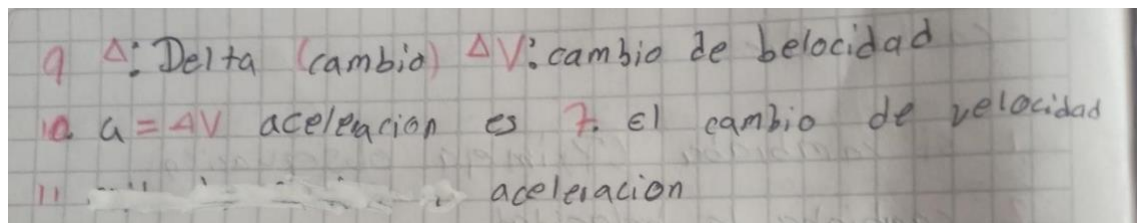 9 Δ: Delta (cambio) ΔV: cambio de belocidad
10. a = ΔV aceleracion es 7. El cambio de velocidad
11 aceleracion